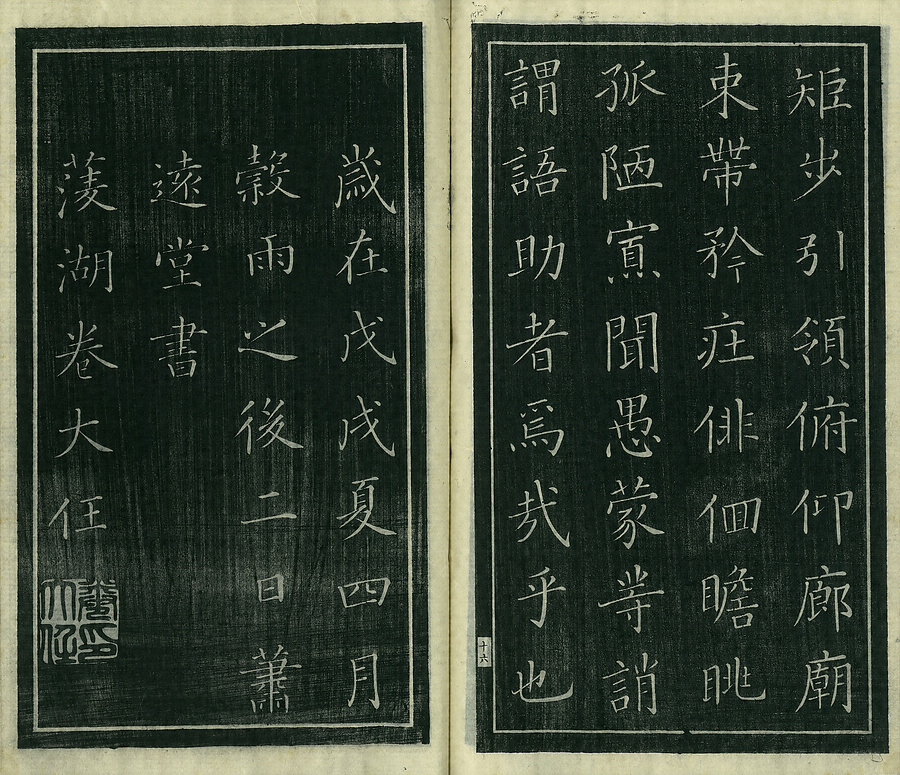 矩步引領俯仰廊廟
束帶矜莊俳佪瞻眺
孤陋寡聞愚蒙等誚
謂語助者焉哉乎也
十六
歳在戊戌夏四月
穀雨之後二日蕭
遠堂書
菱湖卷大任